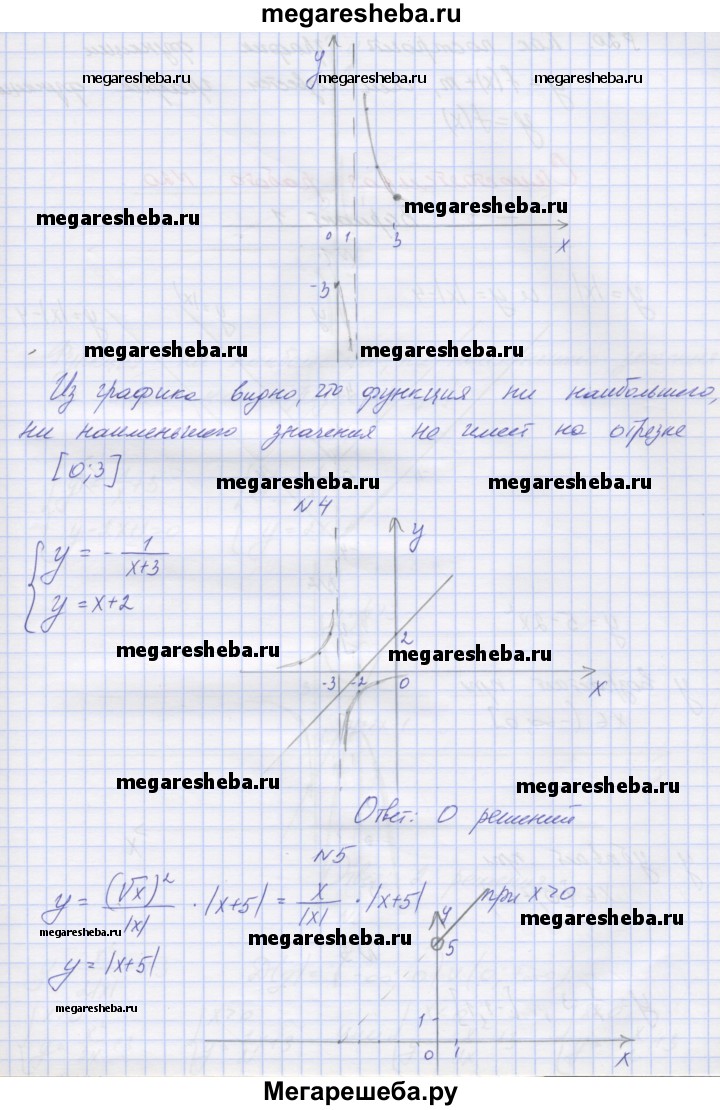 megaresheba.ru
y
megaresheba.ru megaresheba.ru megaresheba.ru
megaresheba.ru megaresheba.ru
0 1 3 x
-3
megaresheba.ru megaresheba.ru
Из графика видно, что функция ни наибольшего,
ни наименьшего значения не имеет на отрезке
[0;3]
megaresheba.ru megaresheba.ru
N4
y = - 1/(x+3)
y = x+2
y
2
megaresheba.ru megaresheba.ru
-3 -2 0 x
megaresheba.ru megaresheba.ru
Ответ: 0 решений
N5
y = (√x)²/|x| · |x+5| = x/|x| · |x+5| при x>0
y
megaresheba.ru megaresheba.ru megaresheba.ru
5
y = |x+5|
megaresheba.ru
1
0 1 x
Мегарешеба.ру